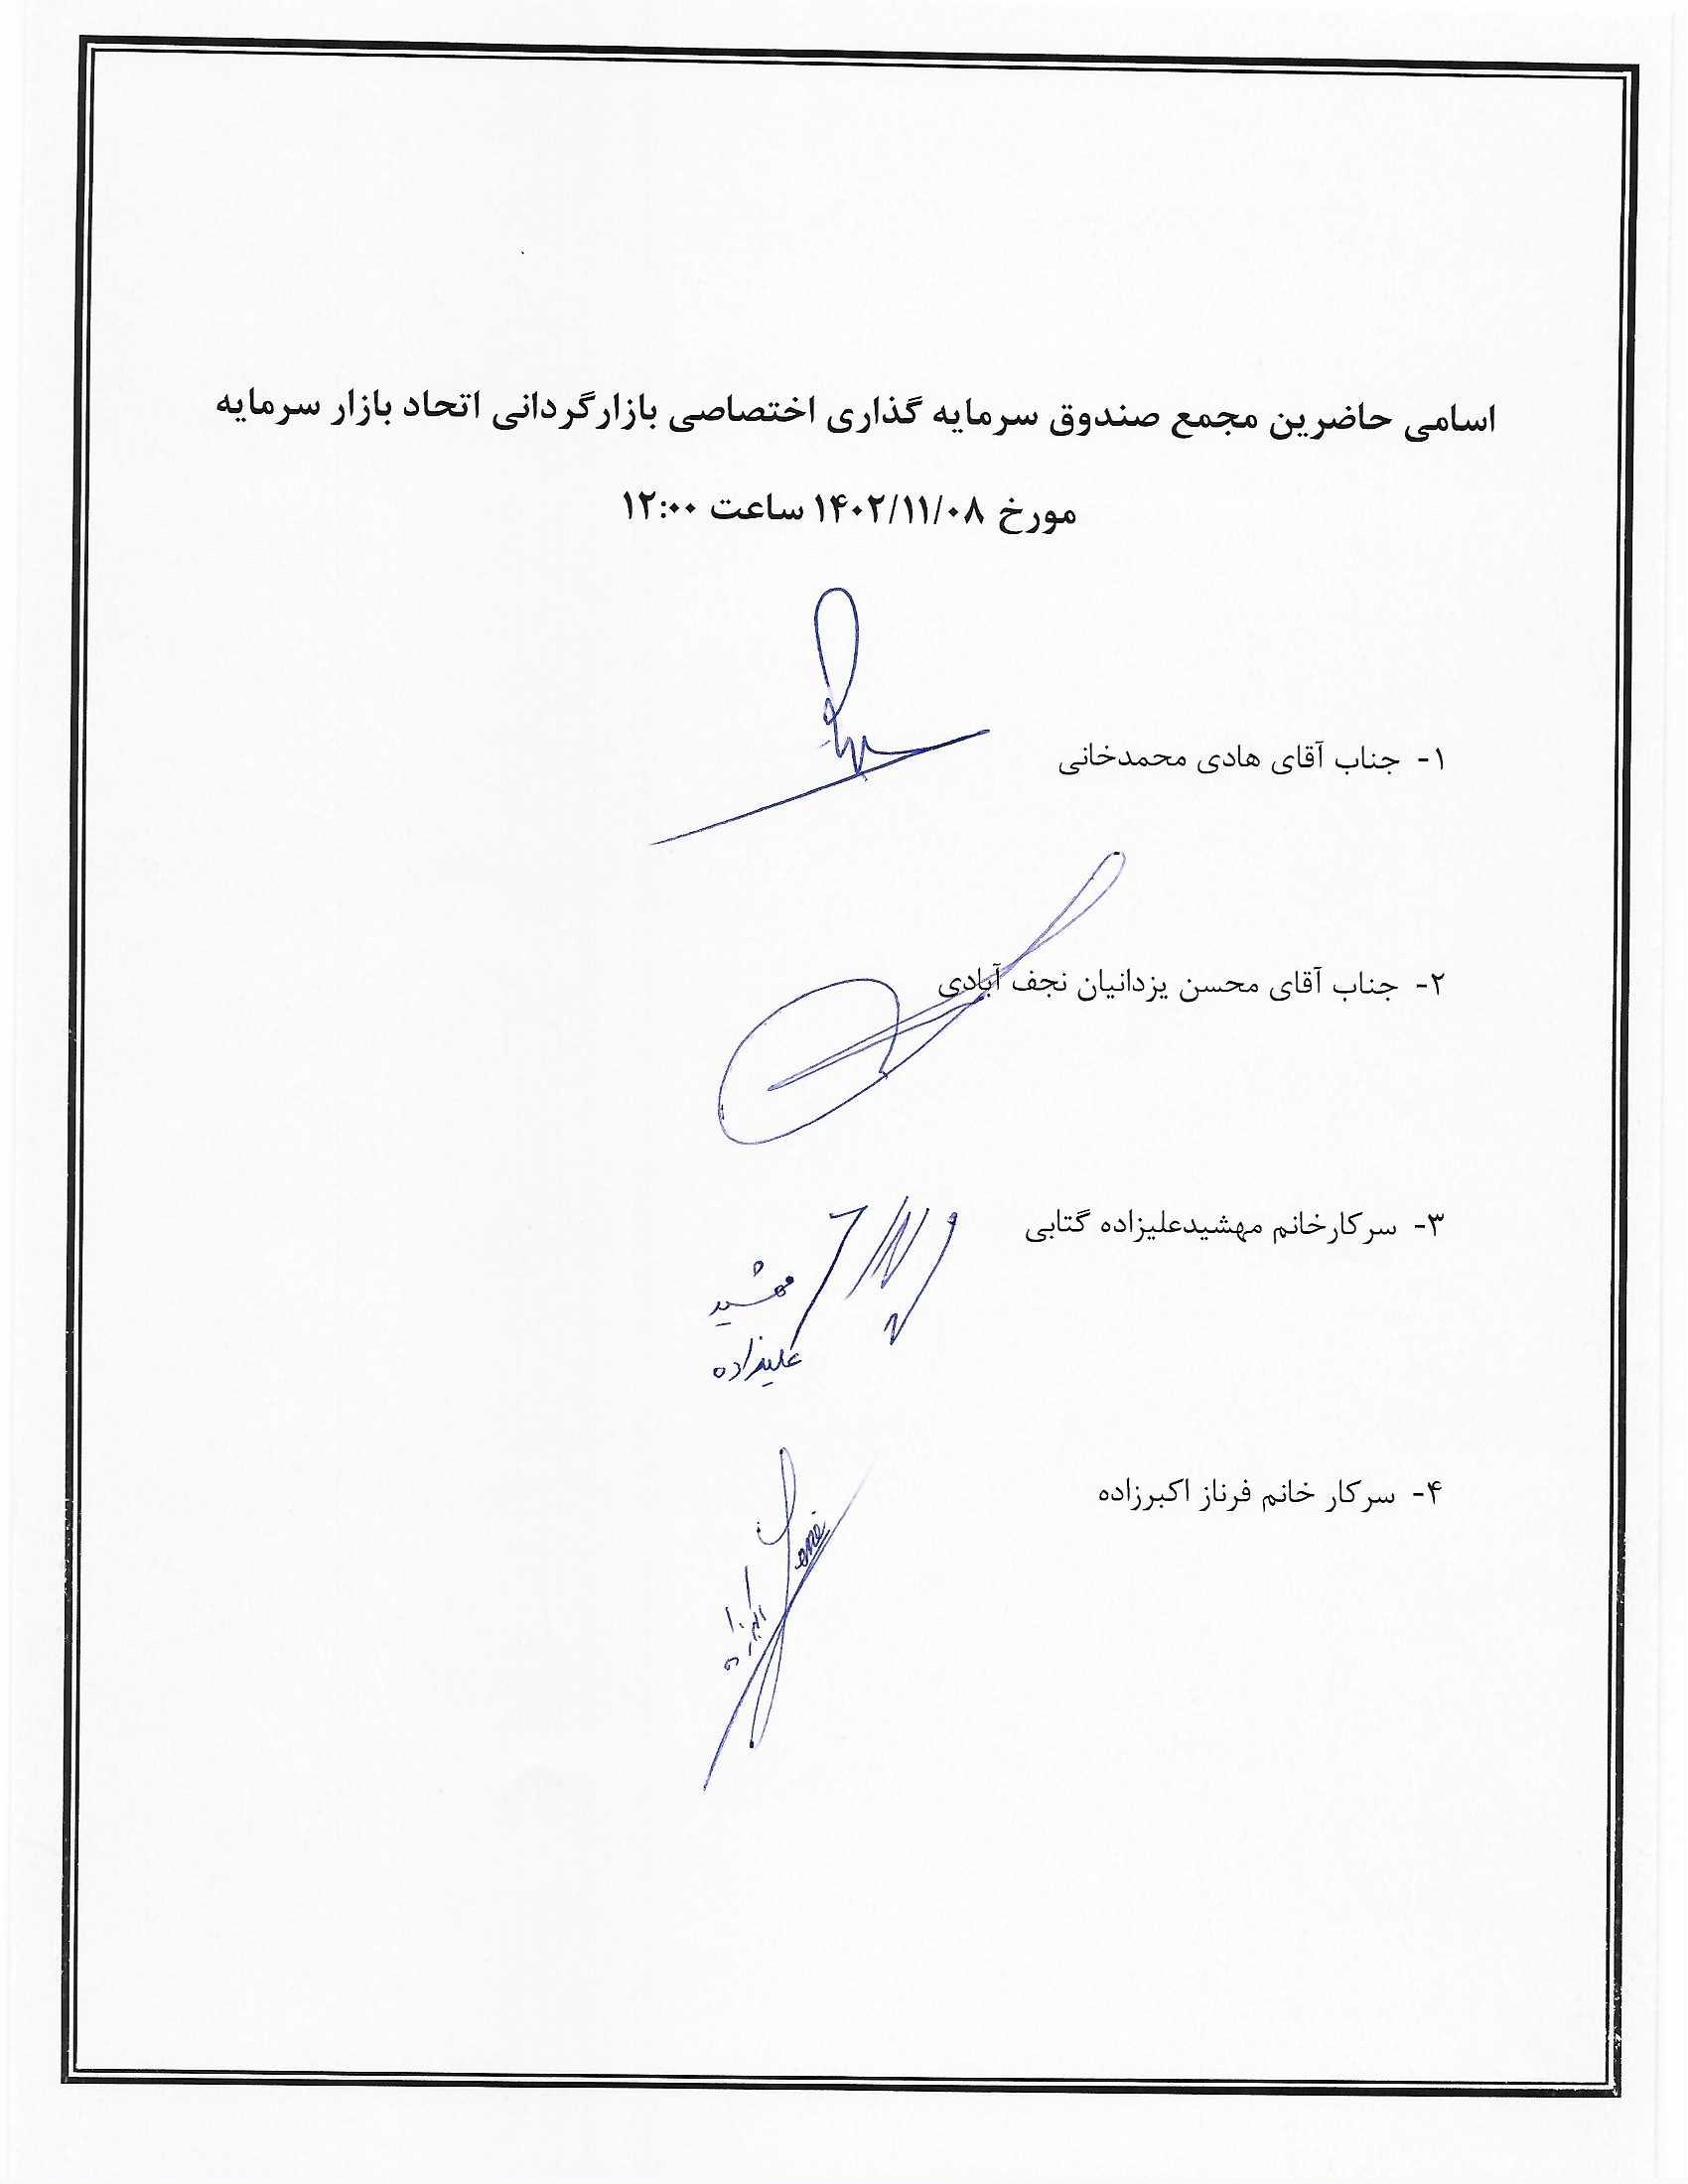 اسامی حاضرین مجمع صندوق سرمایه گذاری اختصاصی بازارگردانی اتحاد بازار سرمایه
مورخ ۱۴۰۲/۱۱/۰۸ ساعت ۱۲:۰۰
۱- جناب آقای هادی محمدخانی
۲- جناب آقای محسن یزدانیان نجف آبادی
۳- سرکارخانم مهشیدعلیزاده گتابی
مهشید
علیزاده
۴- سرکار خانم فرناز اکبرزاده
اکبرزاده